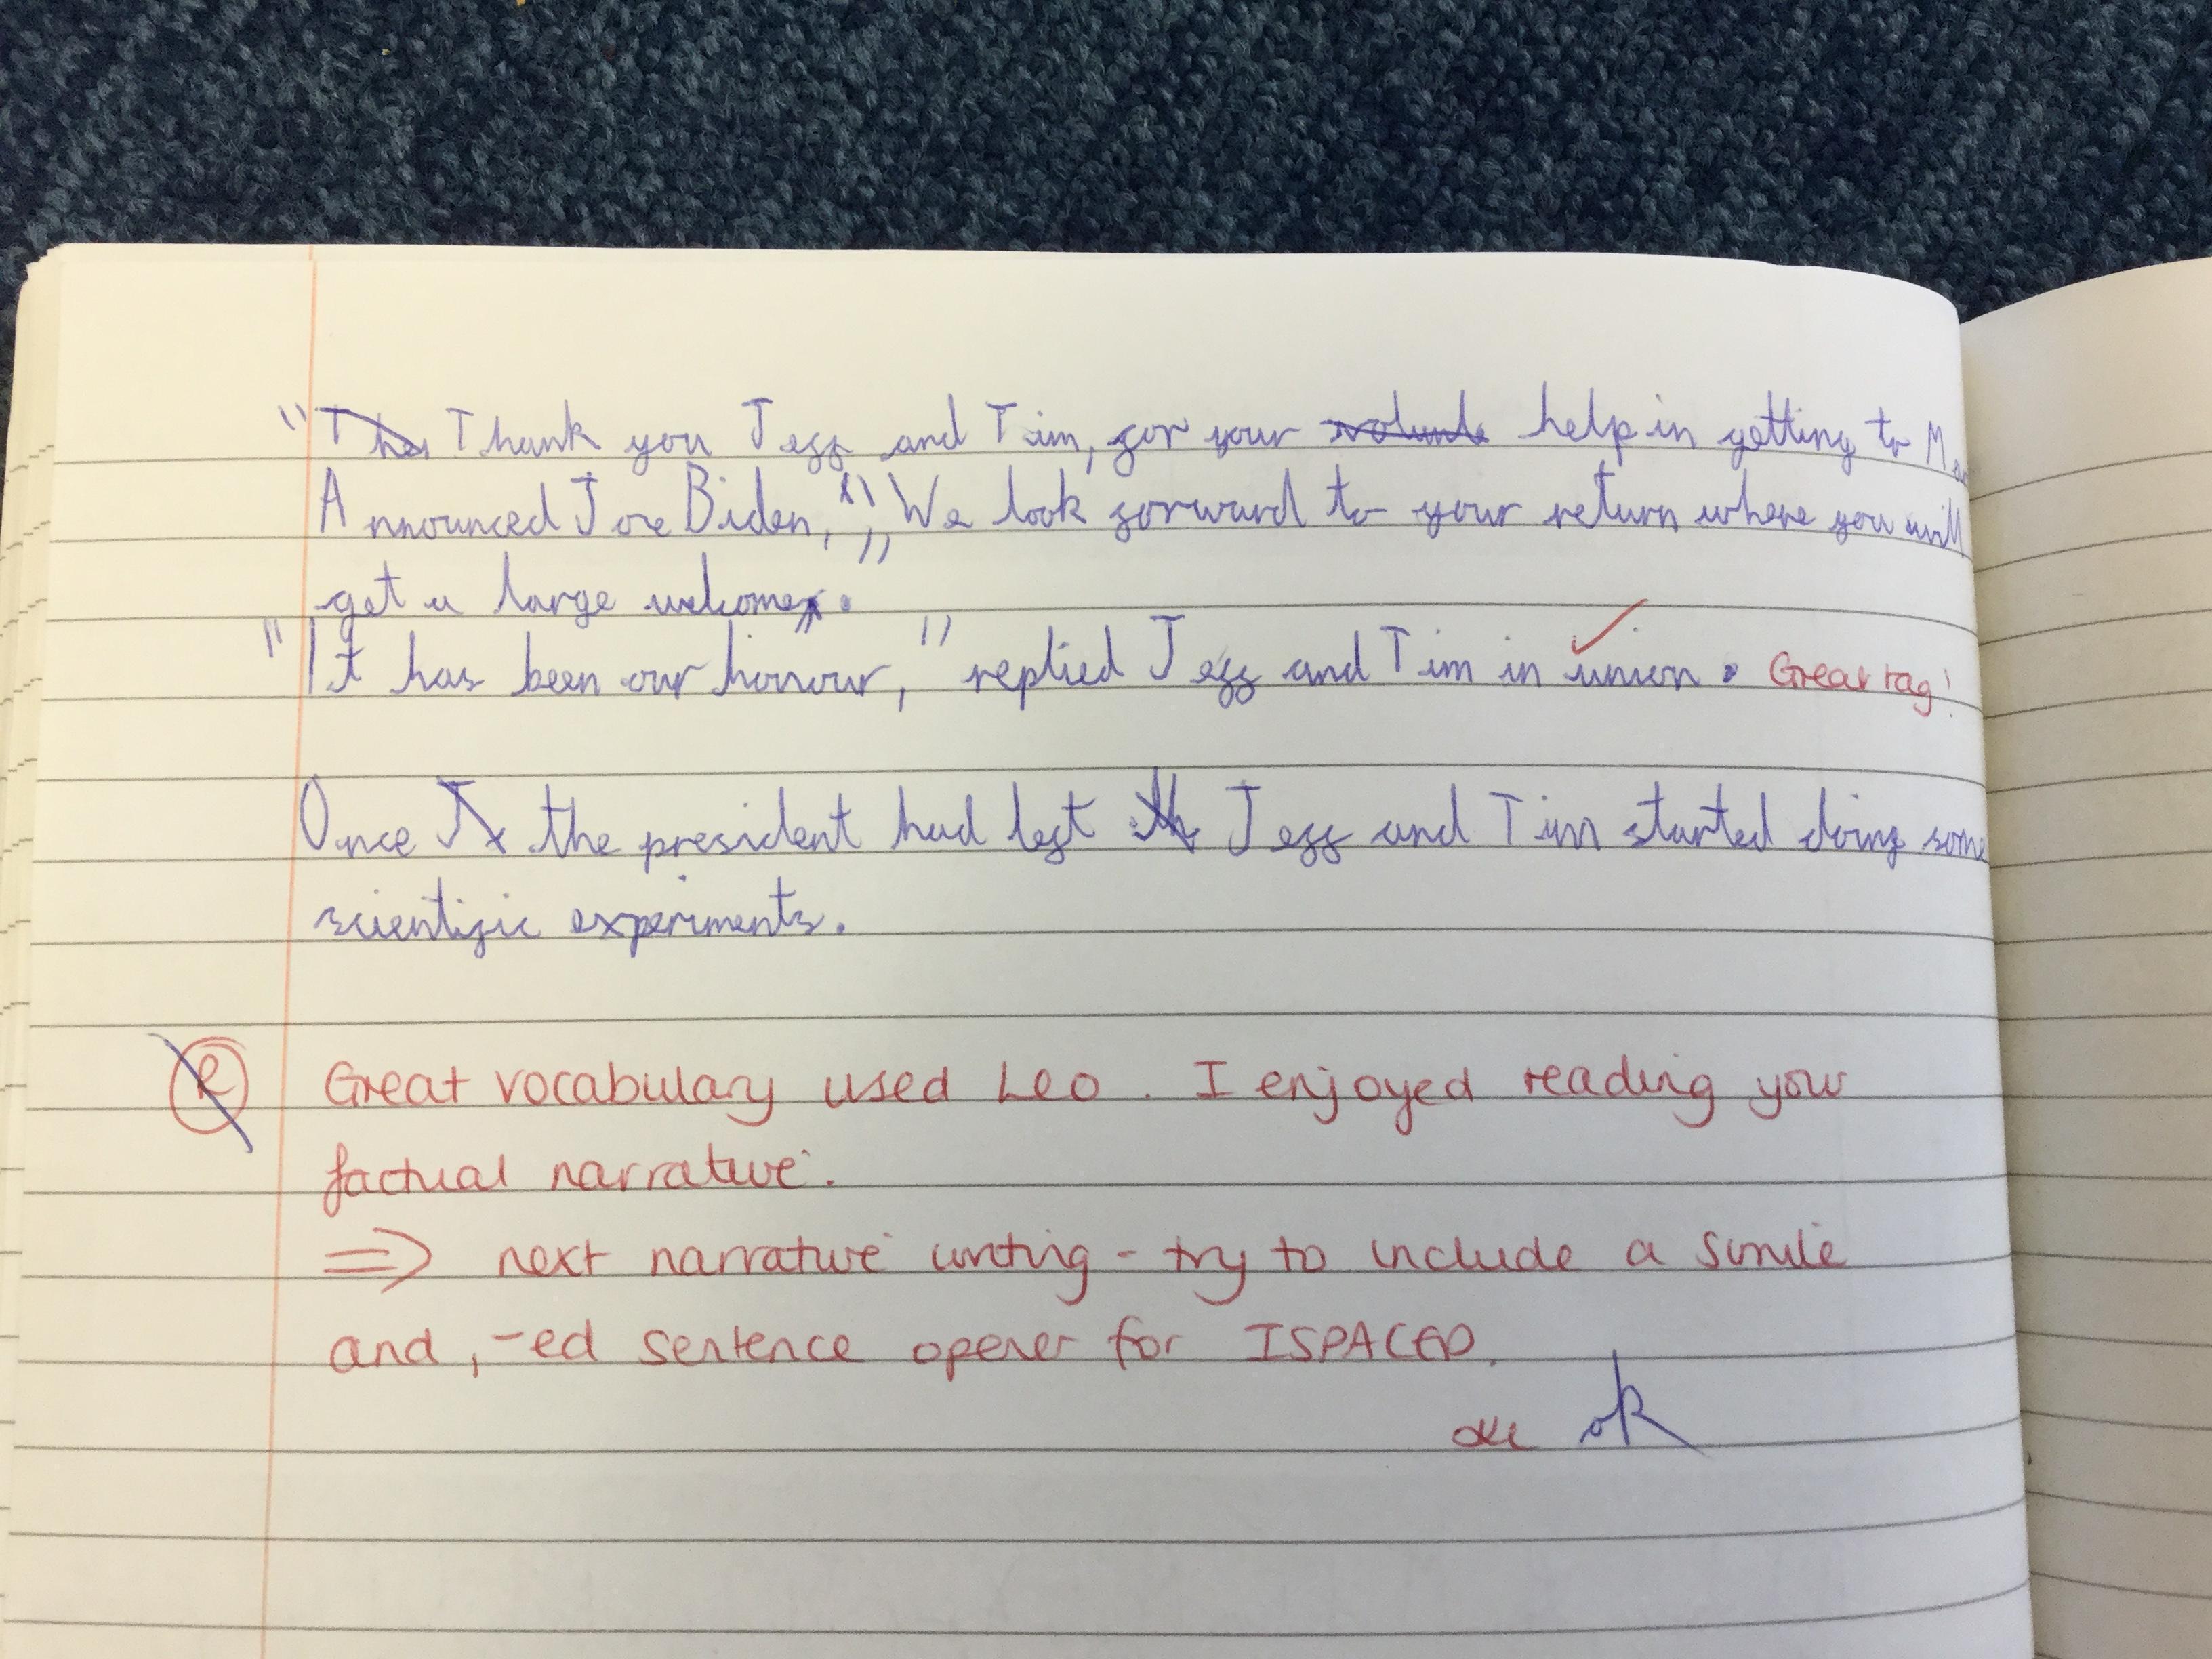 "Thank you Jeff and Tim, for your help in getting to
Announced Joe Biden, "We look forward to your return where you will
get a large welcome.
"It has been our honour," replied Jeff and Tim in union. Great tag!
Once the president had left Jeff and Tim started doing some
scientific experiments.
R Great vocabulary used Leo. I enjoyed reading your
factual narrative.
⇒ next narrative writing - try to include a simile
and , -ed sentence opener for ISPACED.
ok